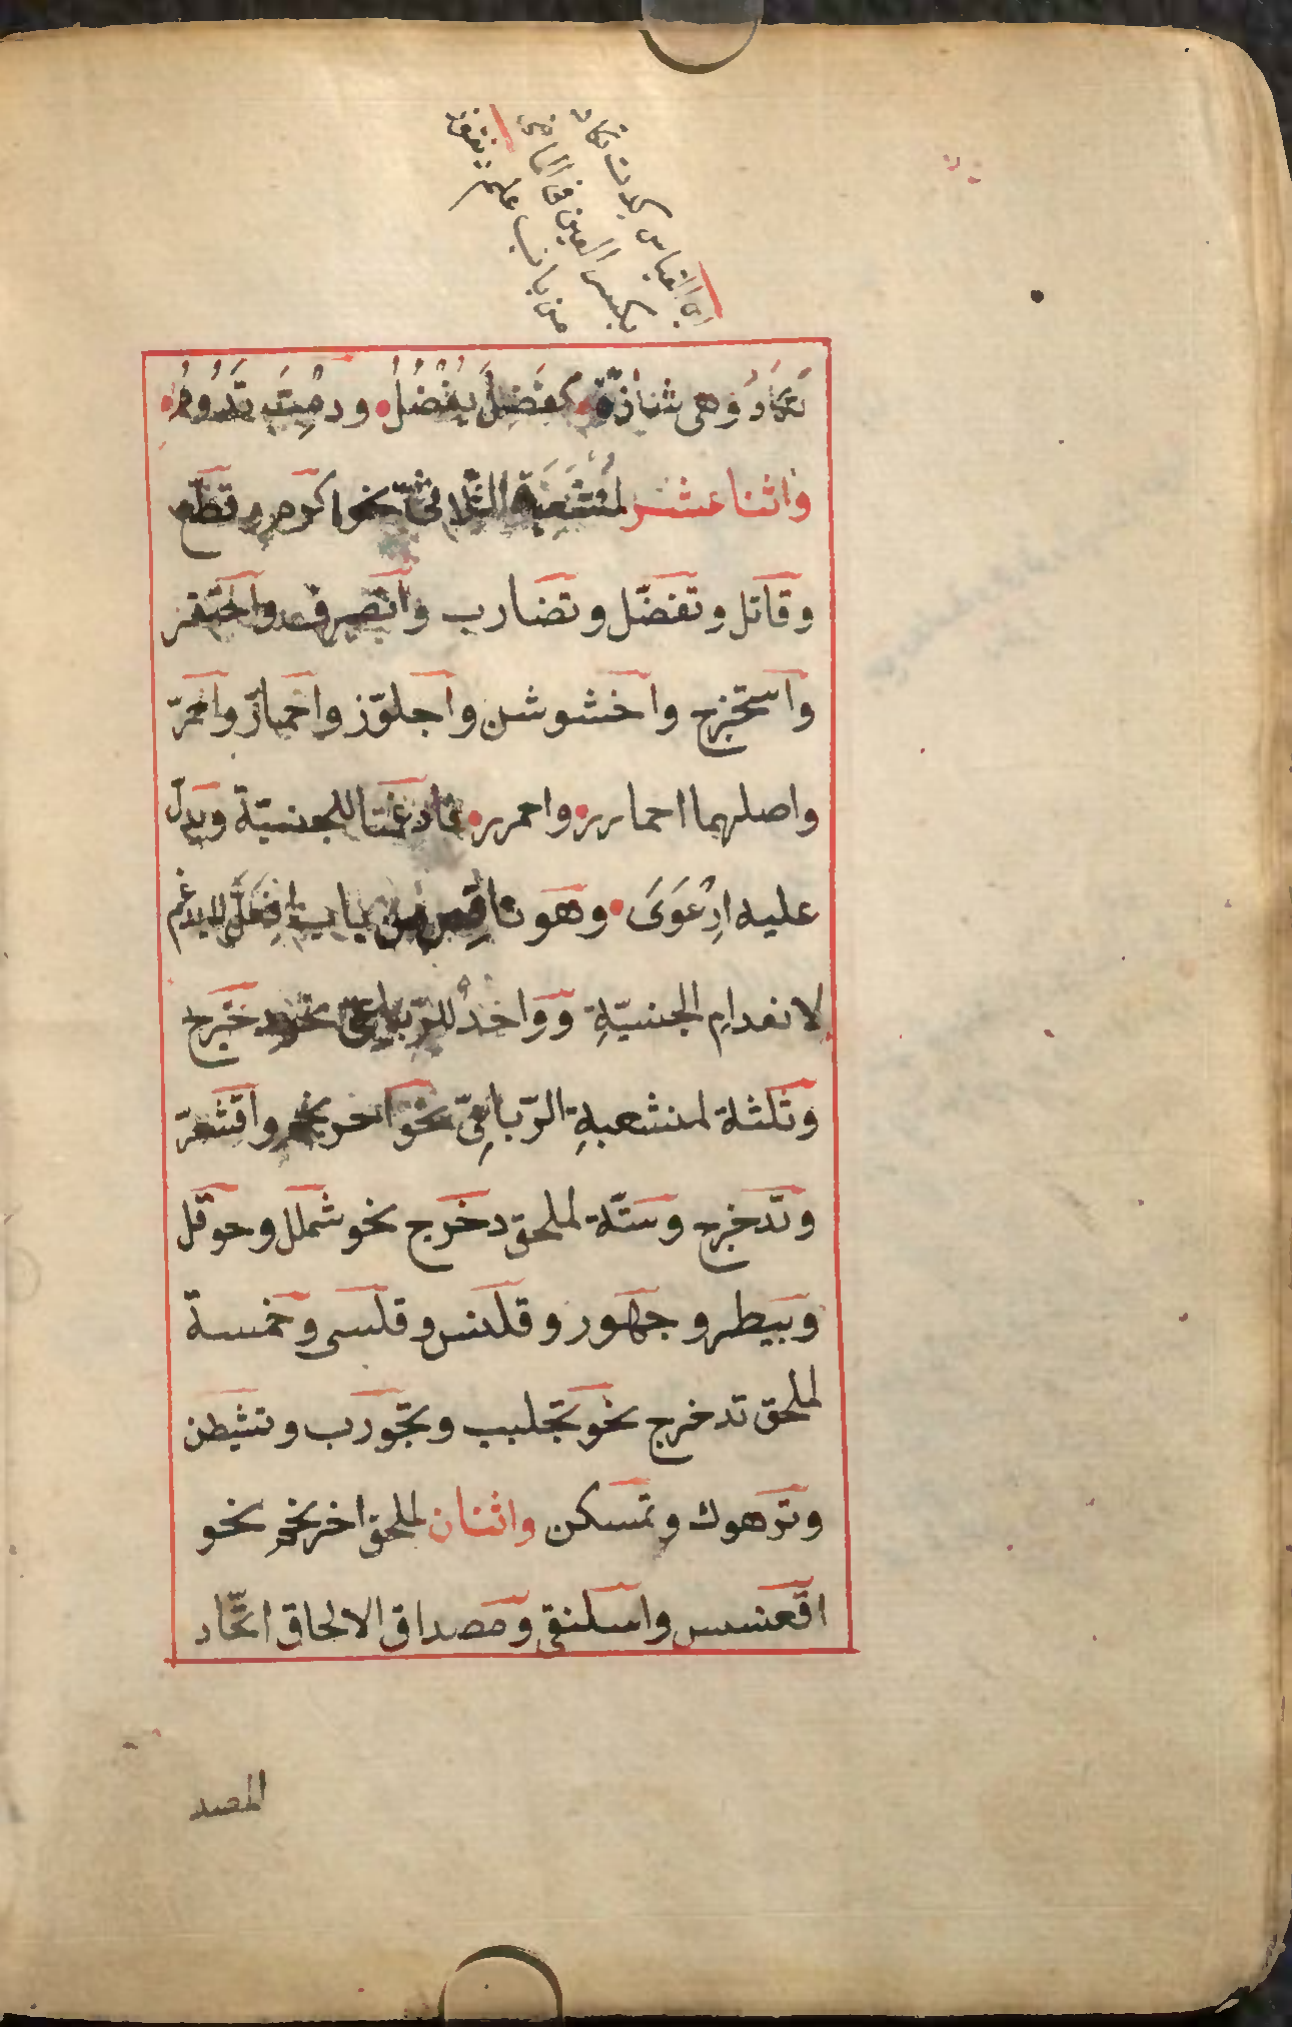 اى القياس كدت تكاد
بكسر العين فى الماضى
من باب علم
تَكَادُ وهى شاذّة كفَضِلَ يَفْضُلُ ودِمْتَ تَدُومُ
واثنا عشر لمُنْشَعِبَةِ الثّلاثىّ نحو اكرم وقطّع
وقاتل وتفضّل وتضارب وانصرف واحتقر
واستخرج واخشوشن واجلوّز واحمارّ واحمرّ
واصلهما احمارر واحمرر فادغمتا للجنسيّة ويدلّ
عليه اِرْعَوَى وهو ناقص من باب افعلّ لا يدغم
لانعدامِ الجنسيّةِ وواحدٌ للرّباعىّ نحو دحرج
وثلثة لمنشعبةِ الرّباعىّ نحو احرنجم واقشعرّ
وتدحرج وستّة لملحق دحرج نحو شملل وحوقل
وبيطر وجهور وقلنس وقلسى وخمسة
لملحق تدحرج نحو تجلبب وتجورب وتشيطن
وترهوك وتمسكن واثنان لملحق احرنجم نحو
اقعنسس واسلنقى ومصداق الالحاق اتّحاد
المصد